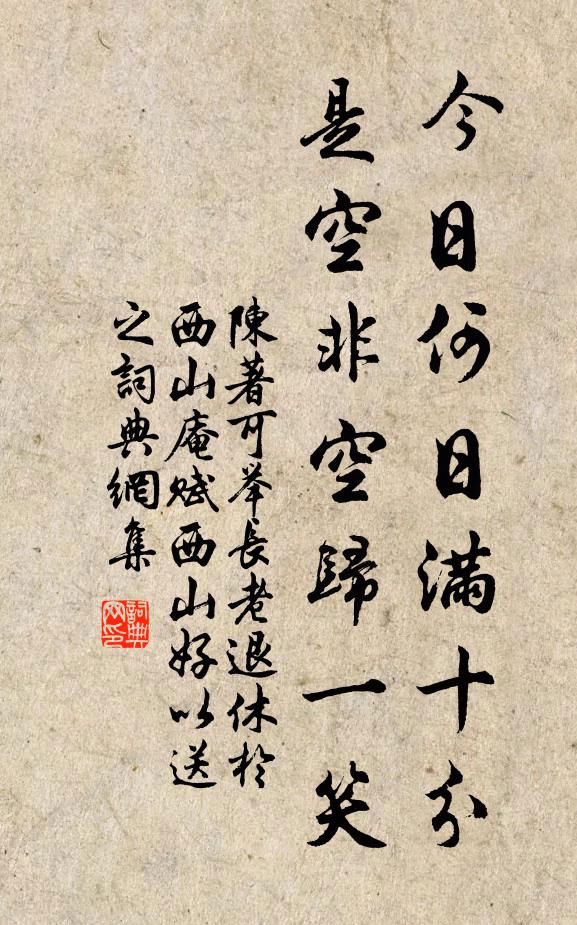 今日何日滿十分
是空非空歸一笑
陳著可举長老退休於
西山庵賦西山好以送
之詞典網集
詞典
网印